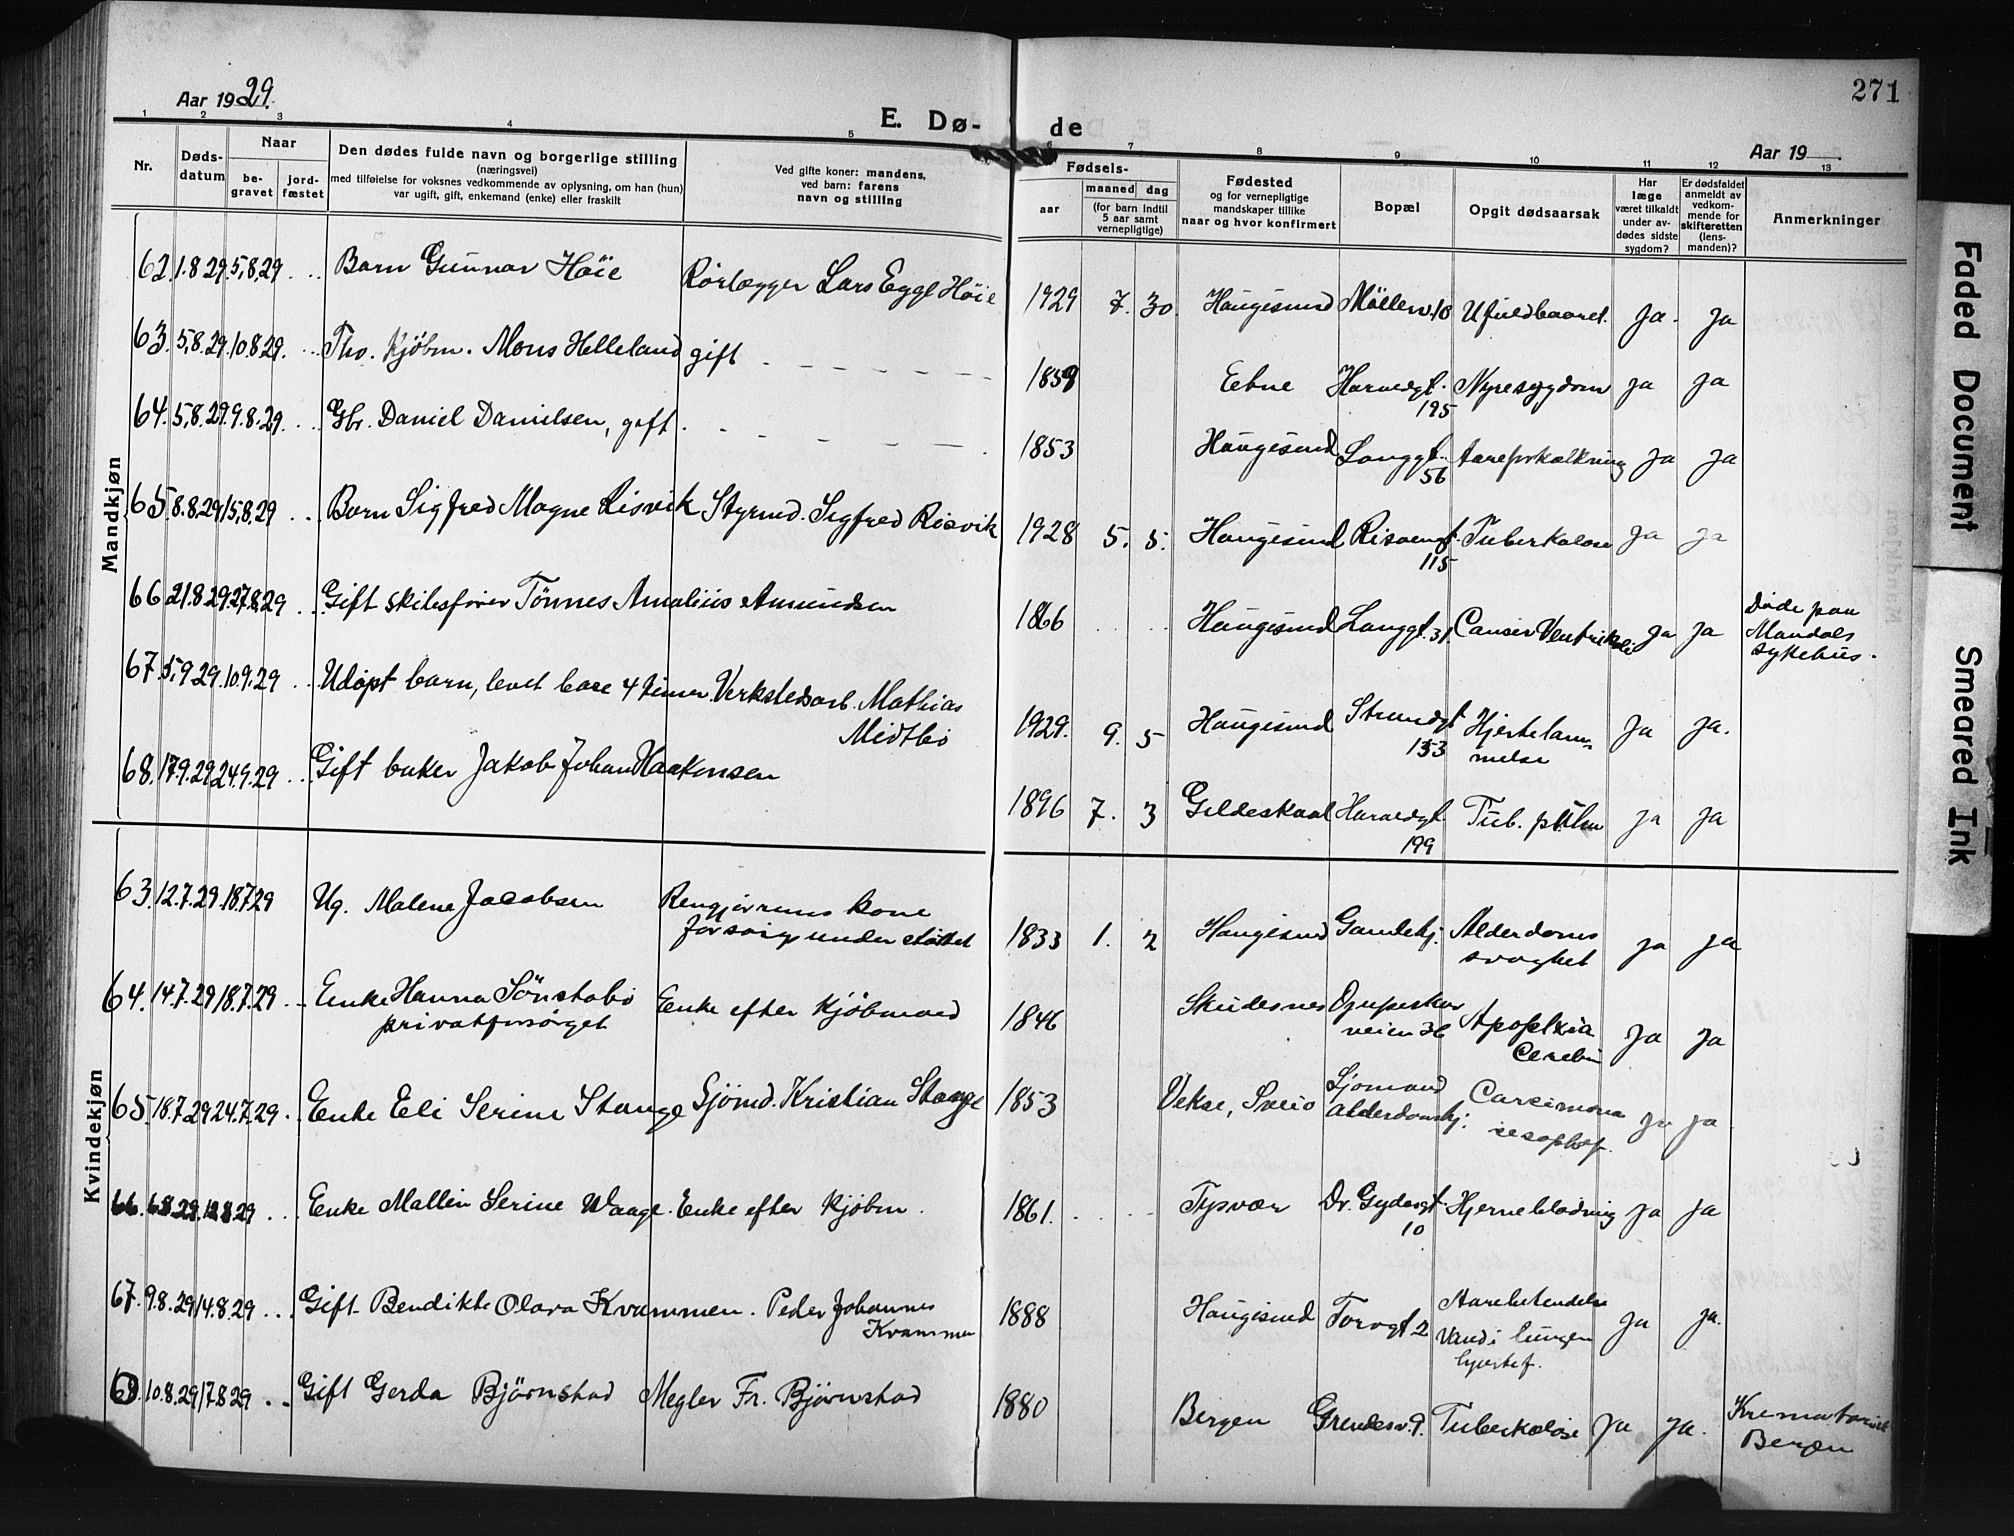 271
Aar 1929.
E. Dø- de
Aar 19
1 2 3 4 5 6 7 8 9 10 11 12 13
Nr.
Døds-
datum
Naar
be-
gravet
jord-
fæstet
Den dødes fulde navn og borgerlige stilling
(næringsvei)
med tilføielse for voksnes vedkommende av oplysning, om han (hun)
var ugift, gift, enkemand (enke) eller fraskilt
Ved gifte koner: mandens,
ved barn: farens
navn og stilling
Fødsels-
aar
maaned dag
(for barn indtil
5 aar samt
vernepligtige)
Fødested
og for vernepligtige
mandskaper tillike
naar og hvor konfirmert
Bopæl
Opgit dødsaarsak
Har
læge
været tilkaldt
under av-
dødes sidste
sygdom?
Er dødsfaldet
anmeldt av
vedkom-
mende for
skifteretten
(lens-
manden)?
Anmerkninger
Mandkjøn
62 1.8.29. 5.8.29 Barn Gunnar Höie Rörlægger Lars Egge Höie 1929 7. 30. Haugesund Möllerv. 10 Ufuldbaaret. Ja. Ja
63. 5.8.29. 10.8.29. Fhv. Kjøbm. Mons Helleland gift 1859 Eebne Haraldgt. 195 Nyresygdom Ja Ja
64. 5.8.29. 9.8.29. Gbr. Daniel Danielsen, gift. 1853 Haugesund Langgt. 56 Aareforkalkning Ja Ja
65. 8.8.29 15.8.29 Barn Sigfred Magne Risvik Styrmd. Sigfred Risvik 1928 5. 5. Haugesund Risøengt. 115 Tuberkulose Ja Ja
66 21.8.29. 27.8.29 Gift skibsfører Tönnes Amalius Amundsen 1866 Haugesund Langgt. 31. Cancer Ventrikuli Ja Ja Døde paa
Mandals
sykehus.
67. 5.9.29. 10.9.29 Udöpt barn, levet bare 4 timer. Verkstedsarb. Mathias
Midtbö 1929. 9. 5 Haugesund Strandgt 153 Hjertelam-
melse Ja Ja.
68. 17.9.29. 24.9.29 Gift baker Jakob Johan Haakonsen 1896 7. 3 Gildeskaal Haraldgt. 199 Tub. pulm Ja Ja
Kvindekjøn
63. 12.7.29. 18.7.29 Ug. Malene Jacobsen Rengjørings kone
forsorgsunderstöttet 1833 1. 2 Haugesund Gamlehj. Alderdoms
svaghet Ja Ja
64. 14.7.29 18.7.29 Enke Hanna Sönstabö
privatforsörget Enke efter Kjöbmand 1846 Skudesnes
veien 36 Apoplexia
Cerebri Ja Ja
65. 18.7.29 24.7.29. Enke Eli Serine Stange Sjömd. Kristian Stange 1853 Vekse, Sveio Sjomand
alderdomshj. Carcinoma
oesophag. Ja Ja
66. 6.8.29. 12.8.29 Enke Mallin Serine Waage. Enke efter Kjöbm. 1861. Tysvær Dr. Gydesgt. 10 Hjerneblødning Ja Ja
67. 9.8.29 14.8.29 Gift Bendikte Olava Kvammen. Peder Johannes
Kvammen 1888 Haugesund Torvgt 2 Aarebetendelse
Vand i lungen
hjertef. Ja Ja.
68. 10.8.29 17.8.29 Gift Gerda Björnstad Megler Fr. Björnstad 1880 Bergen Grendesv. 9. Tuberkulose Ja Ja. Krematoriet
Bergen
Faded Document
Smeared Ink